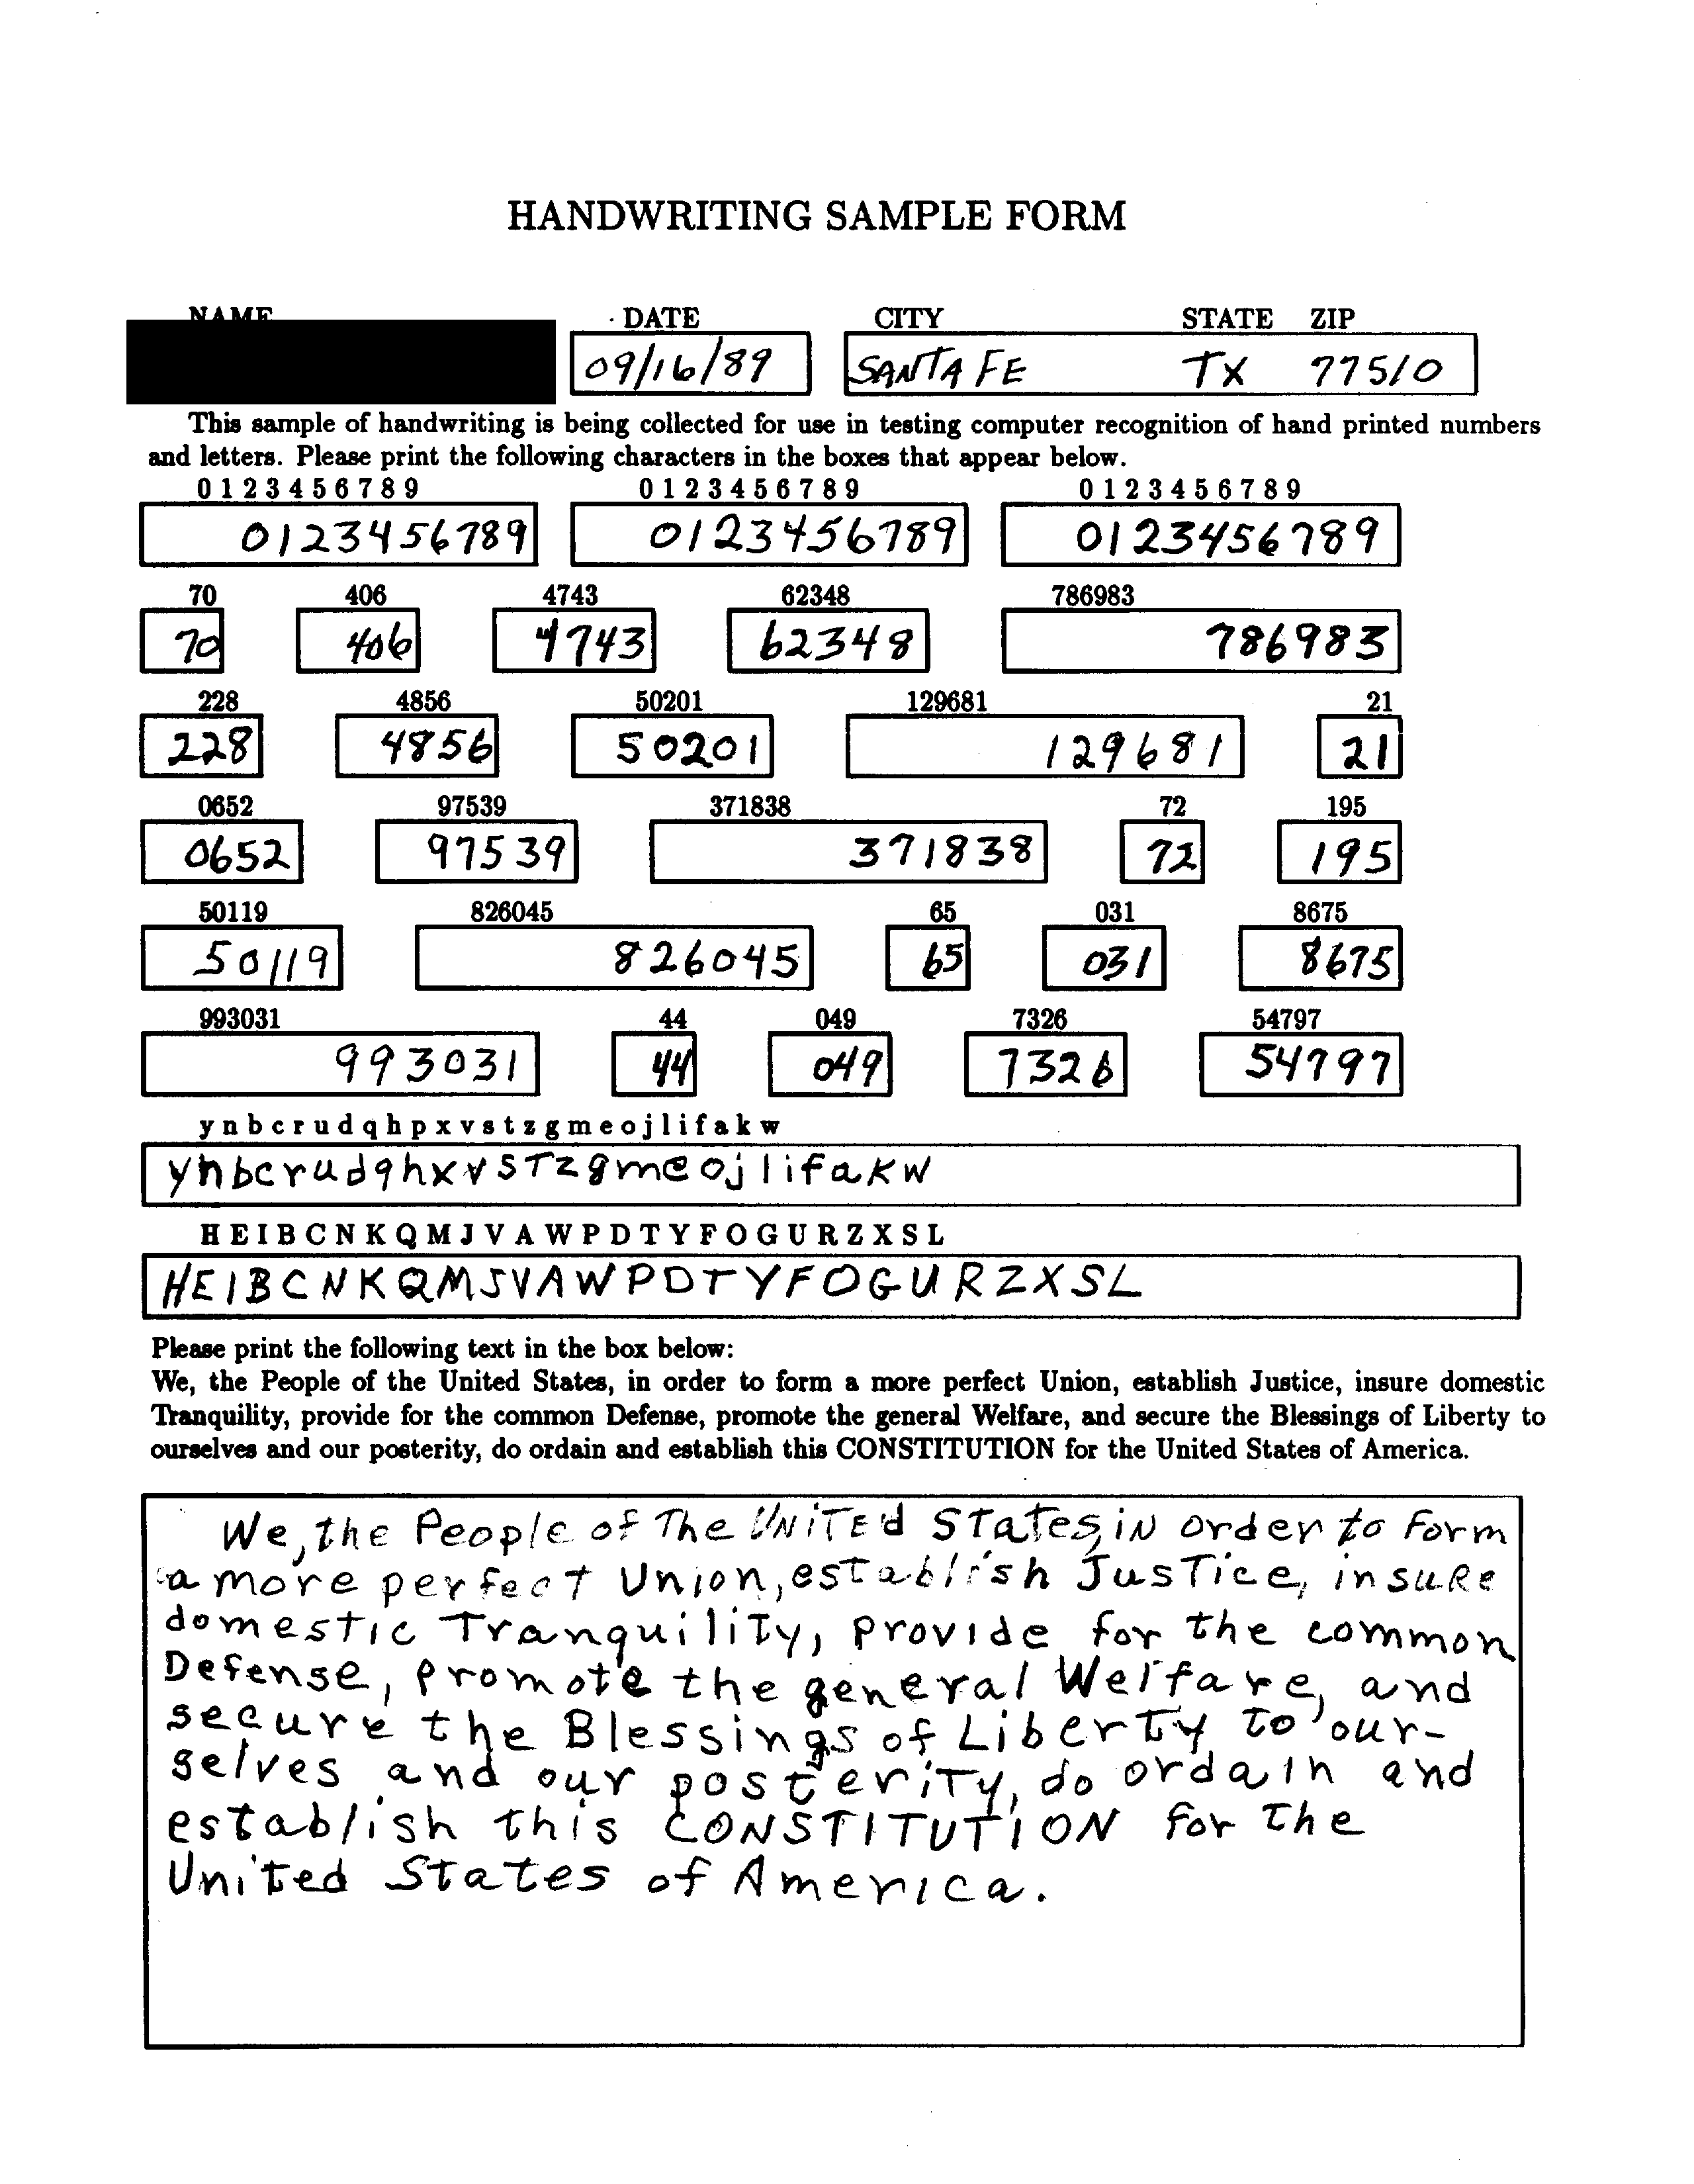 HANDWRITING SAMPLE FORM
NAME DATE CITY STATE ZIP
09/16/89 SANTA FE TX 77510
This sample of handwriting is being collected for use in testing computer recognition of hand printed numbers
and letters. Please print the following characters in the boxes that appear below.
0 1 2 3 4 5 6 7 8 9 0 1 2 3 4 5 6 7 8 9 0 1 2 3 4 5 6 7 8 9
0123456789 0123456789 0123456789
70 406 4743 62348 786983
70 406 4743 62348 786983
228 4856 50201 129681 21
228 4856 50201 129681 21
0652 97539 371838 72 195
0652 97539 371838 72 195
50119 826045 65 031 8675
50119 826045 65 031 8675
993031 44 049 7326 54797
993031 44 049 7326 54797
y n b c r u d q h p x v s t z g m e o j l i f a k w
ynbcrudqhxvsTzgmeojlifaKW
H E I B C N K Q M J V A W P D T Y F O G U R Z X S L
HEIBCNKQMJVAWPDTYFOGURZXSL
Please print the following text in the box below:
We, the People of the United States, in order to form a more perfect Union, establish Justice, insure domestic
Tranquility, provide for the common Defense, promote the general Welfare, and secure the Blessings of Liberty to
ourselves and our posterity, do ordain and establish this CONSTITUTION for the United States of America.
We, the People of The UNiTEd STaTes, iN order to Form
a more perfecT Union, esTablish JusTice, insuRe
domesTic TranquiliTy, provide for the common
Defense, promote the general Welfare, and
secure the Blessings of LiberTy to our-
selves and our posteriTy, do ordain and
establish this CONSTITUTiON for the
United States of America.